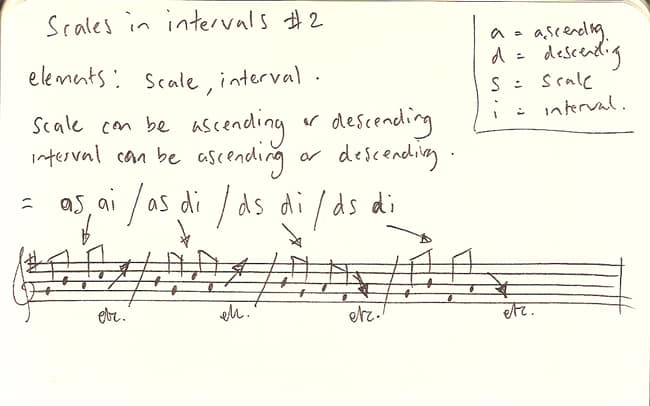 Scales in intervals #2
a = ascending
d = descendig
s = scale
i = interval.
elements: scale, interval.
scale can be ascending or descending
interval can be ascending or descending.
= as ai / as di / ds di / ds di
etc. etc. etc. etc.